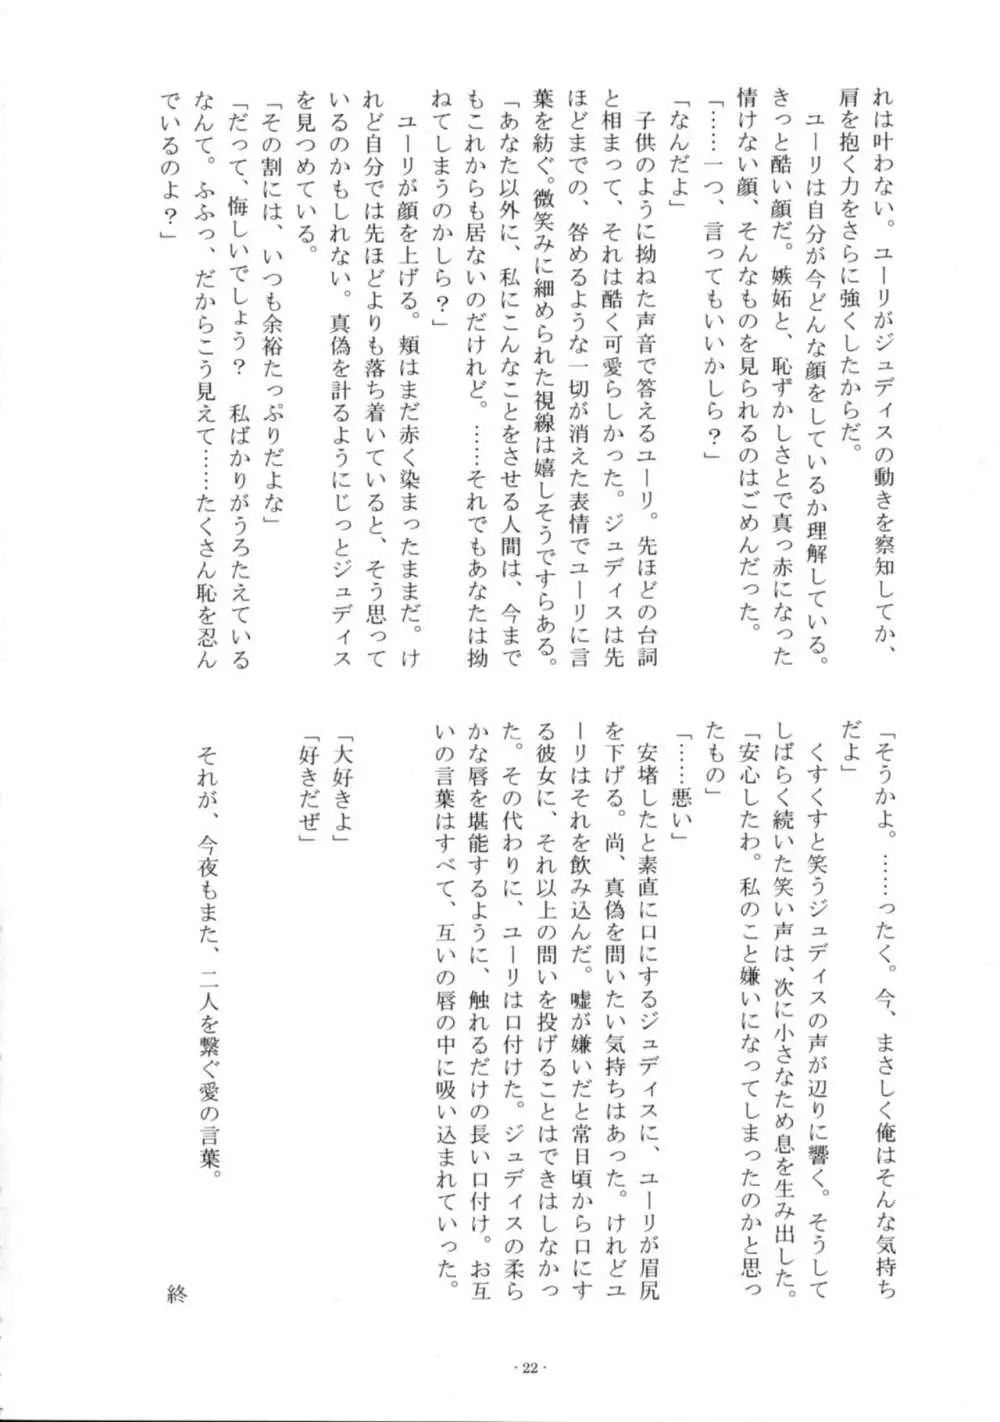 れは叶わない。ユーリがジュディスの動きを察知してか、
肩を抱く力をさらに強くしたからだ。
　ユーリは自分が今どんな顔をしているか理解している。
きっと酷い顔だ。嫉妬と、恥ずかしさとで真っ赤になった
情けない顔、そんなものを見られるのはごめんだった。
「……一つ、言ってもいいかしら？」
「なんだよ」
　子供のように拗ねた声音で答えるユーリ。先ほどの台詞
と相まって、それは酷く可愛らしかった。ジュディスは先
ほどまでの、咎めるような一切が消えた表情でユーリに言
葉を紡ぐ。微笑みに細められた視線は嬉しそうですらある。
「あなた以外に、私にこんなことをさせる人間は、今まで
もこれからも居ないのだけれど。……それでもあなたは拗
ねてしまうのかしら？」
　ユーリが顔を上げる。頬はまだ赤く染まったままだ。け
れど自分では先ほどよりも落ち着いていると、そう思って
いるのかもしれない。真偽を計るようにじっとジュディス
を見つめている。
「その割には、いつも余裕たっぷりだよな」
「だって、悔しいでしょう？　私ばかりがうろたえている
なんて。ふふっ、だからこう見えて……たくさん恥を忍ん
でいるのよ？」
「そうかよ。……ったく。今、まさしく俺はそんな気持ち
だよ」
　くすくすと笑うジュディスの声が辺りに響く。そうして
しばらく続いた笑い声は、次に小さなため息を生み出した。
「安心したわ。私のこと嫌いになってしまったのかと思っ
たもの」
「……悪い」
　安堵したと素直に口にするジュディスに、ユーリが眉尻
を下げる。尚、真偽を問いたい気持ちはあった。けれどユ
ーリはそれを飲み込んだ。嘘が嫌いだと常日頃から口にす
る彼女に、それ以上の問いを投げることはできはしなかっ
た。その代わりに、ユーリは口付けた。ジュディスの柔ら
かな唇を堪能するように、触れるだけの長い口付け。お互
いの言葉はすべて、互いの唇の中に吸い込まれていった。
「大好きよ」
「好きだぜ」
　それが、今夜もまた、二人を繋ぐ愛の言葉。
終
・22・